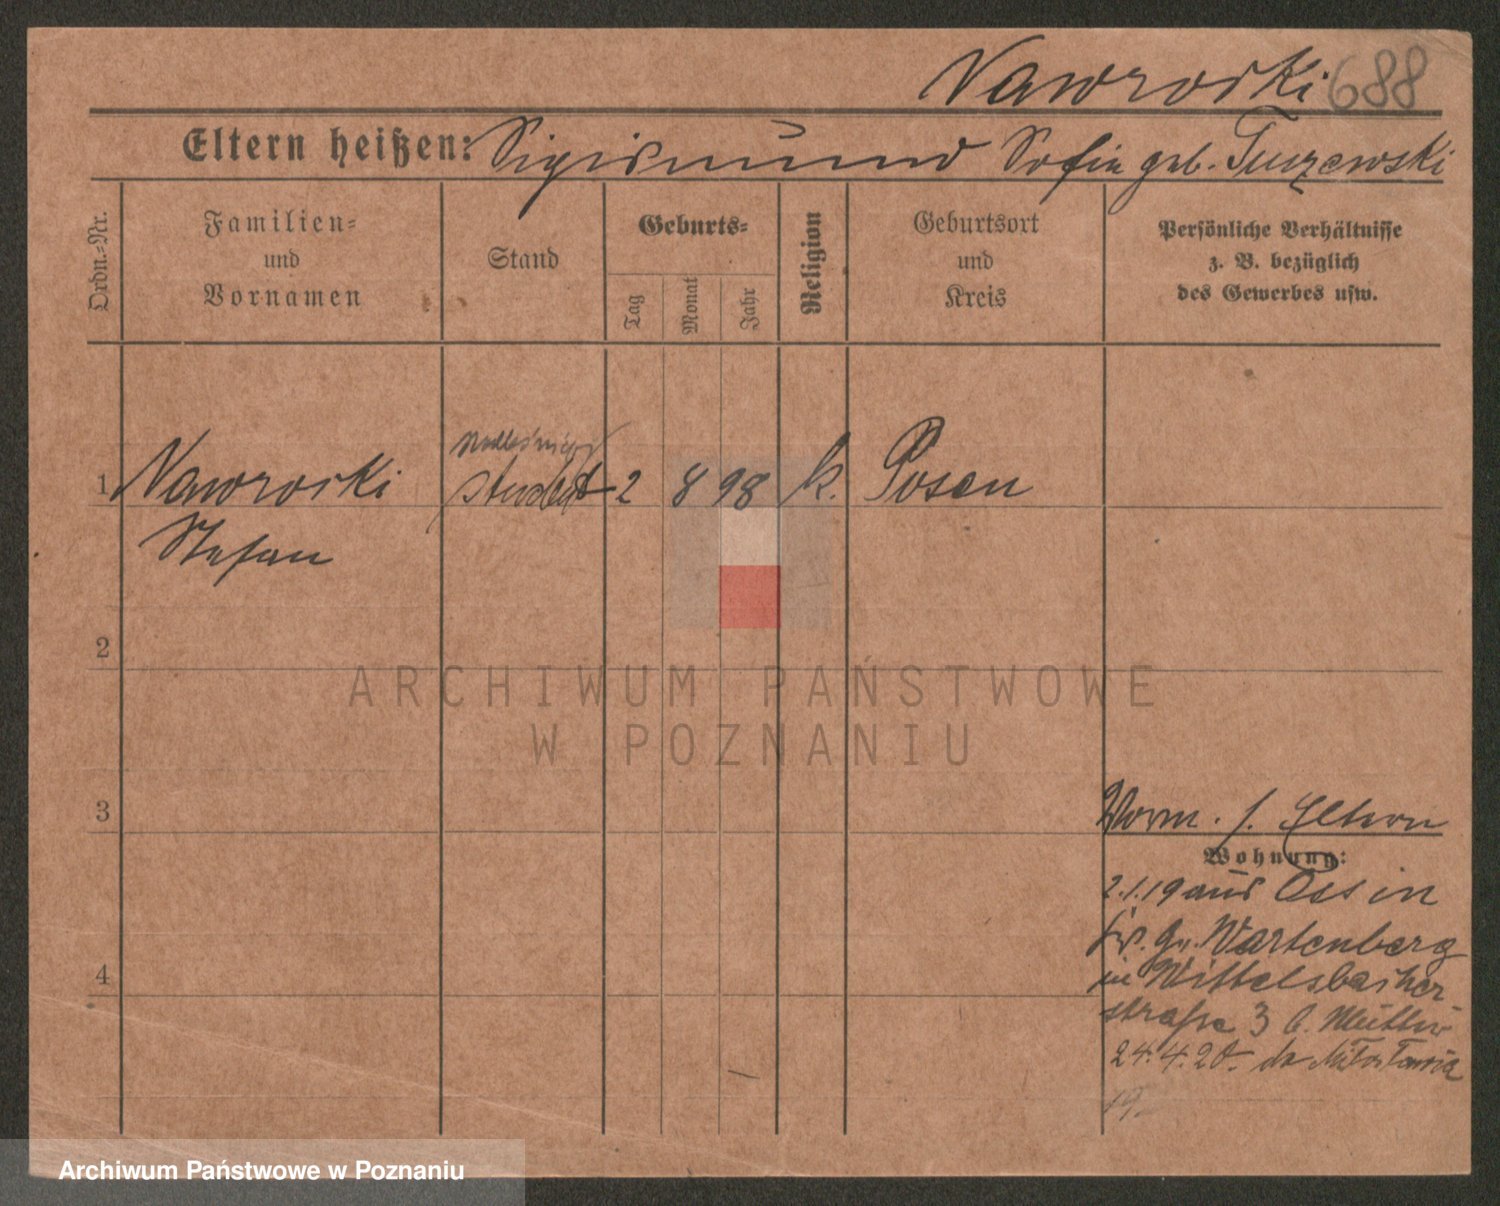 Nawrocki 688
Eltern heißen: Sigismund Sofie geb. Tuszewski
Ordn.-Nr.
Familien-
und
Vornamen
Stand
Geburts-
Tag
Monat
Jahr
Religion
Geburtsort
und
Kreis
Persönliche Verhältnisse
z. B. bezüglich
des Gewerbes usw.
1 Nawrocki student 2 8 98 k. Posen
Stefan
2
3
4
Vorm. s. Eltern
Wohnung:
2.1.19 aus Ossin
Kr. Gr. Wartenberg
in Wittelsbacher
straße 3 b. Mutter
24.4.20
19
ARCHIWUM PAŃSTWOWE
W POZNANIU
Archiwum Państwowe w Poznaniu